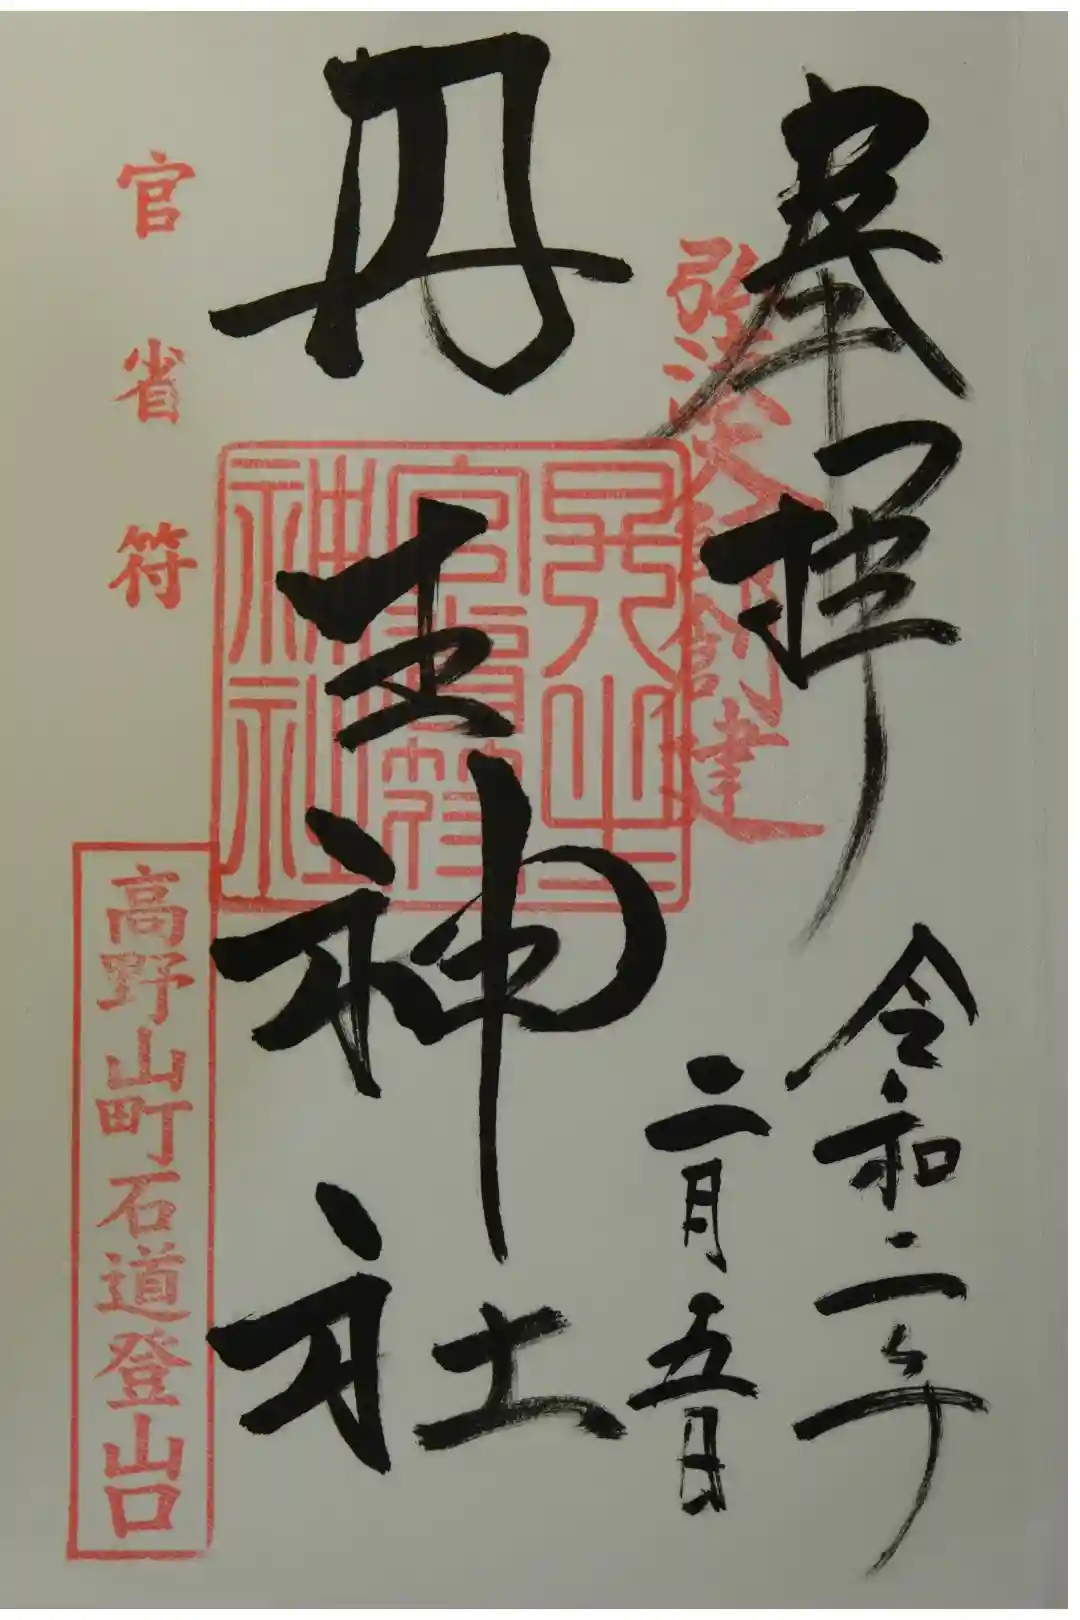 奉拝
弘法大師創建
令和二年
二月五日
丹生神社
官省符
神社
官省符
高野山町石道登山口